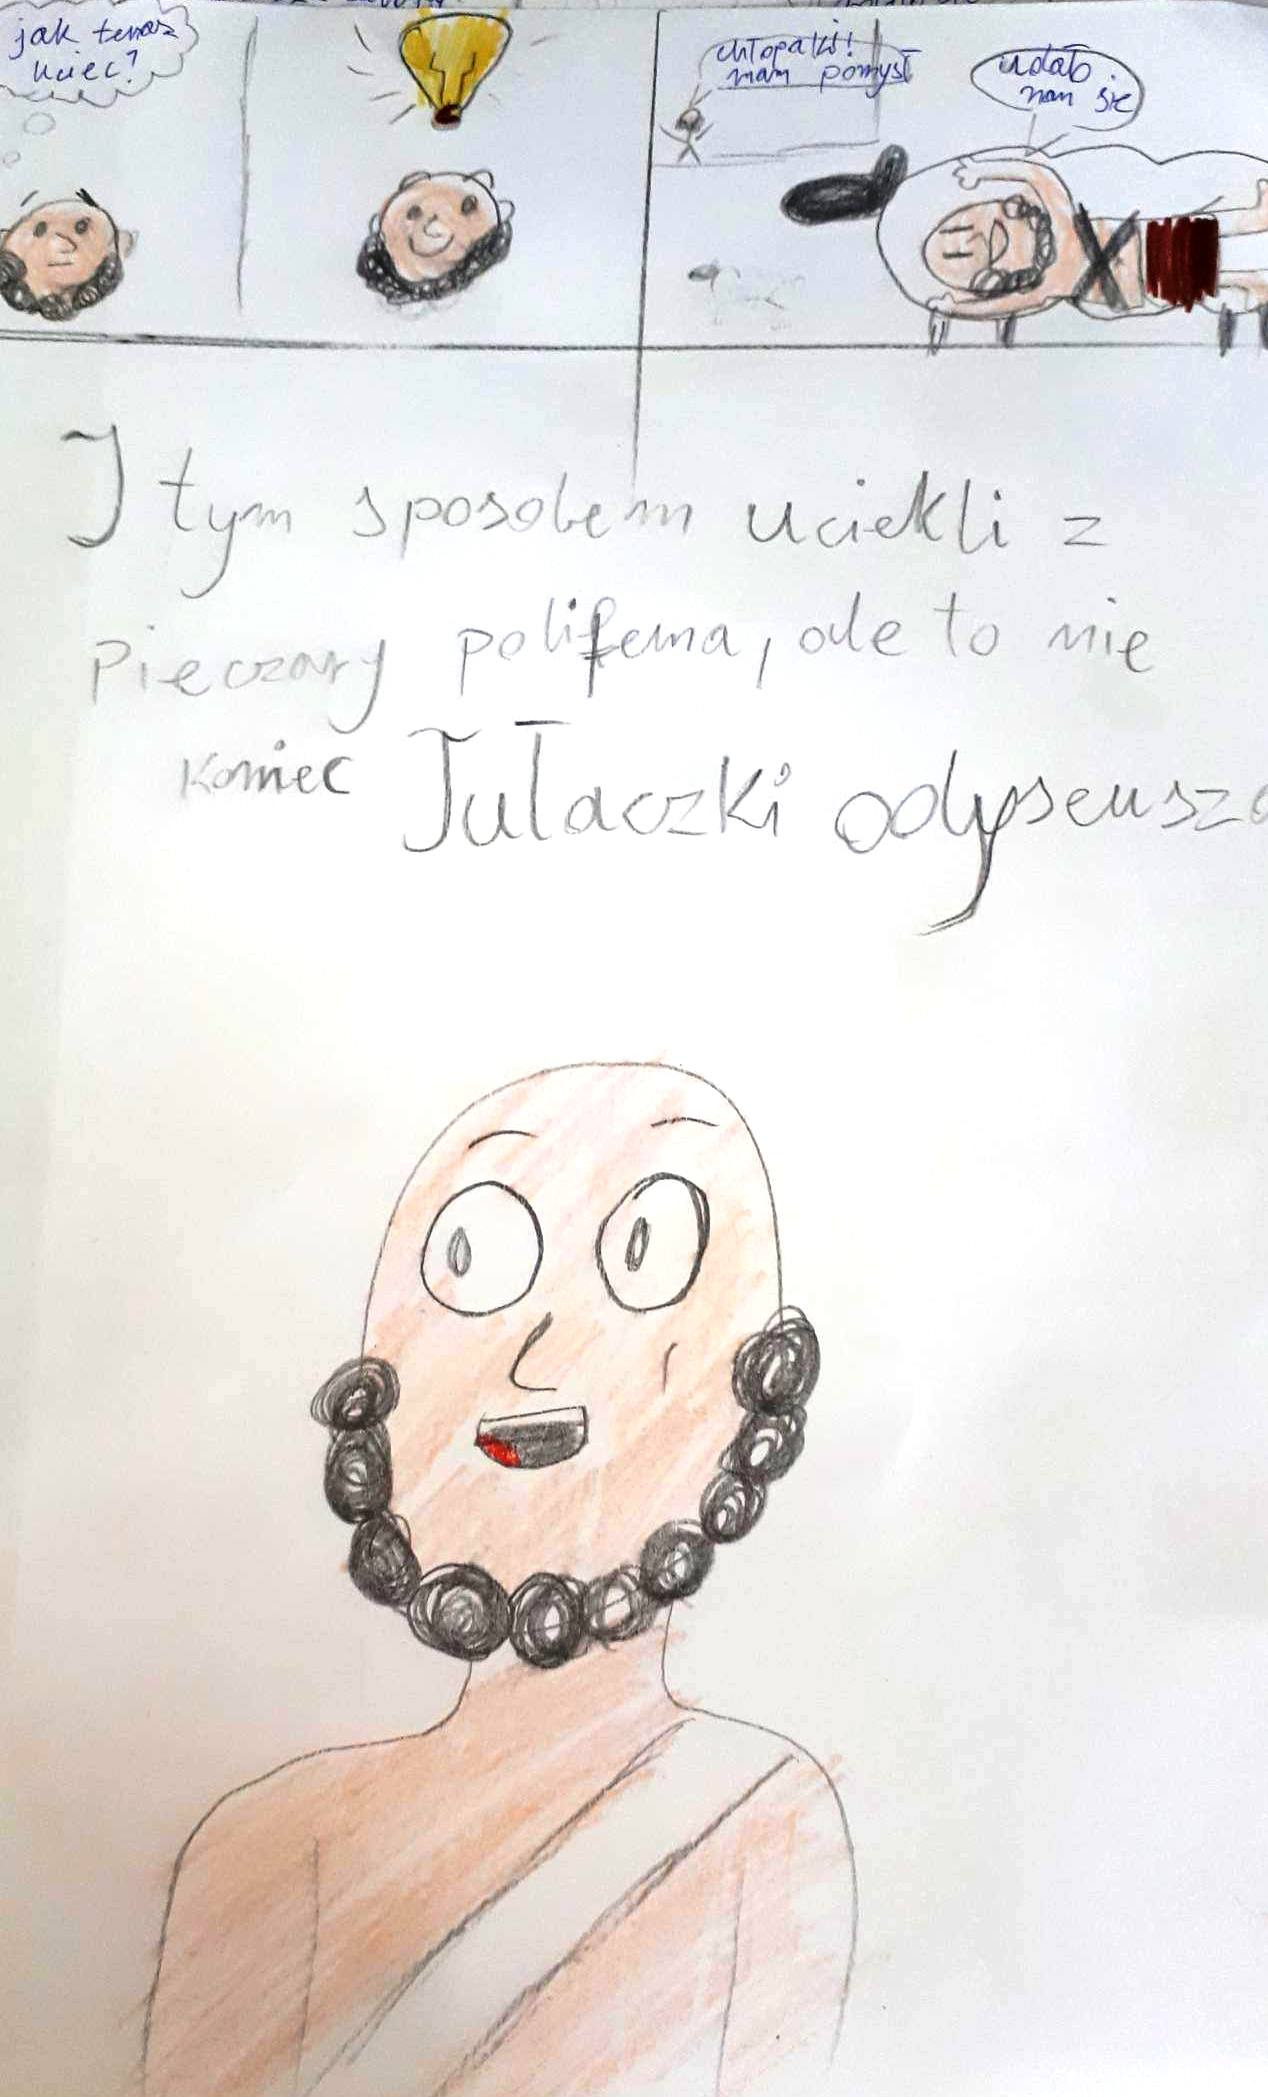 jak teraz
uciec?
chłopaki!
mam pomysł
udało
nam się
I tym sposobem uciekli z
pieczary polifema, ale to nie
koniec Tułaczki odyseusza